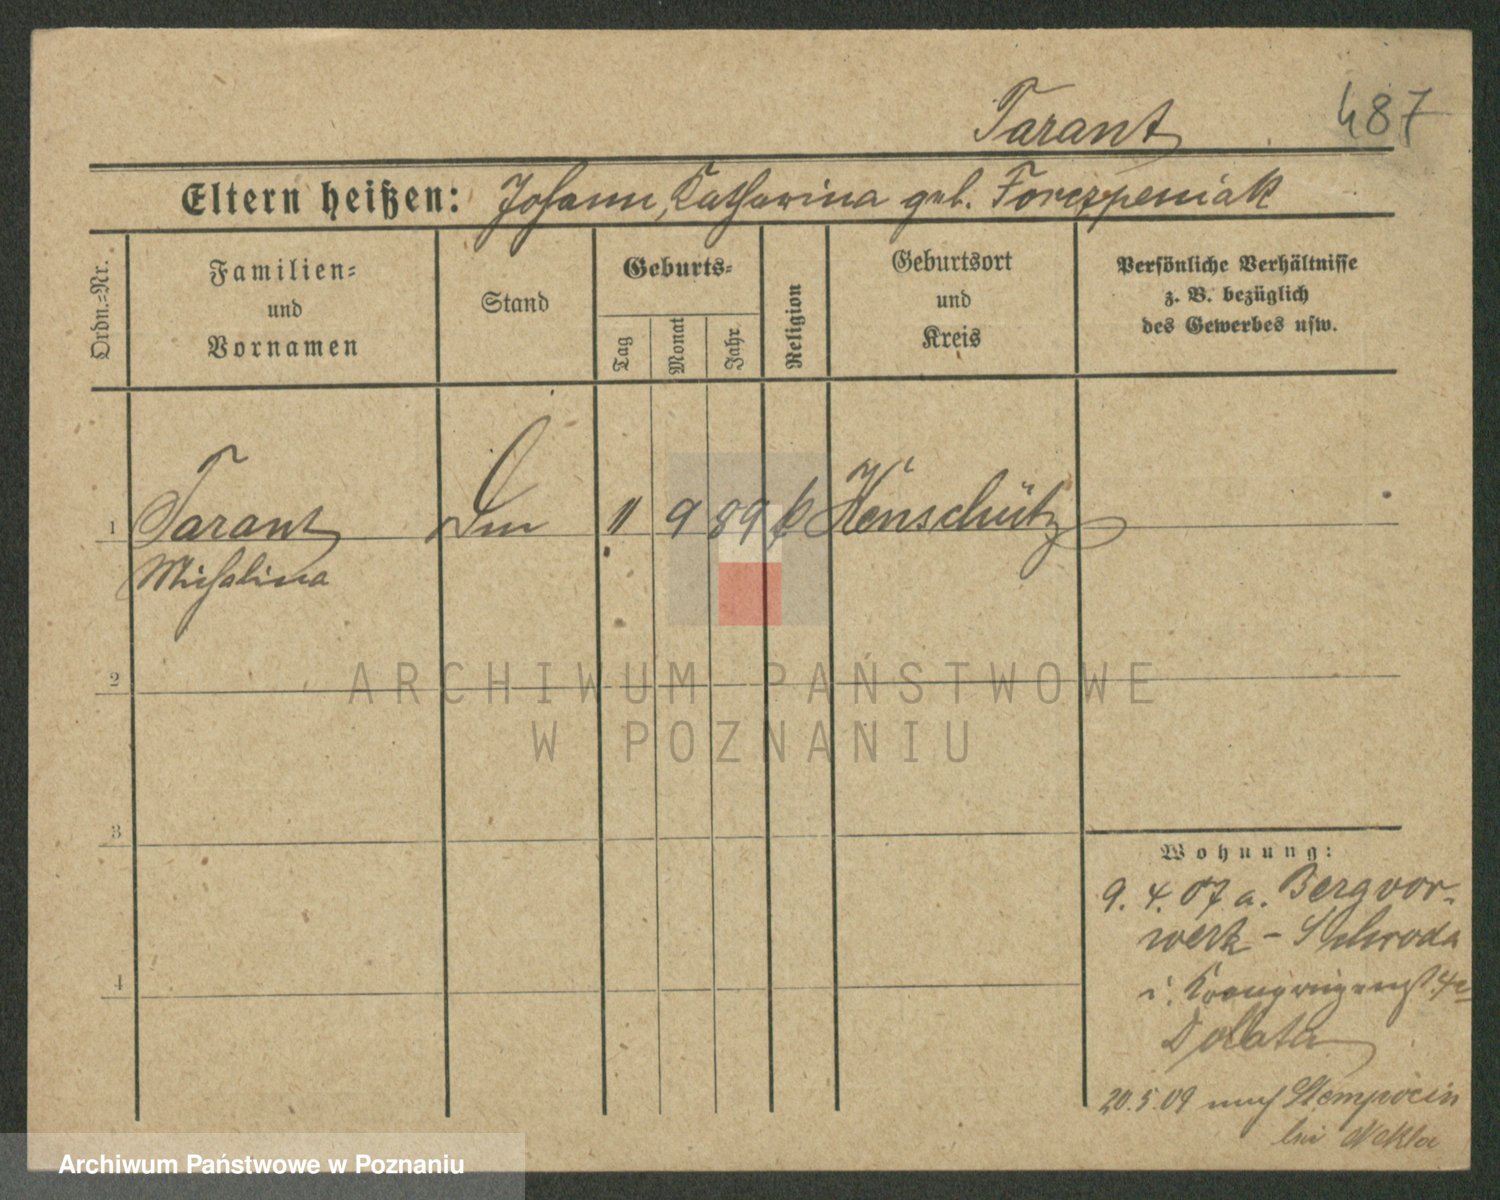 487
Tarant
Eltern heißen: Johann, Katharina geb. Forczpeniak
Ordn.=Nr.
Familien=
und
Vornamen
Stand
Geburts=
Tag
Monat
Jahr
Religion
Geburtsort
und
Kreis
Persönliche Verhältnisse
z. B. bezüglich
des Gewerbes usw.
1 Tarant 11 9 89 k Henschütz
Michalina
2
3
4
Wohnung:
9. 4. 07 a. Bergvor-
werk - Schroda
i.
Dollata
20.5.09 nach Stempocin
bei Nekla
ARCHIWUM PAŃSTWOWE
W POZNANIU
Archiwum Państwowe w Poznaniu